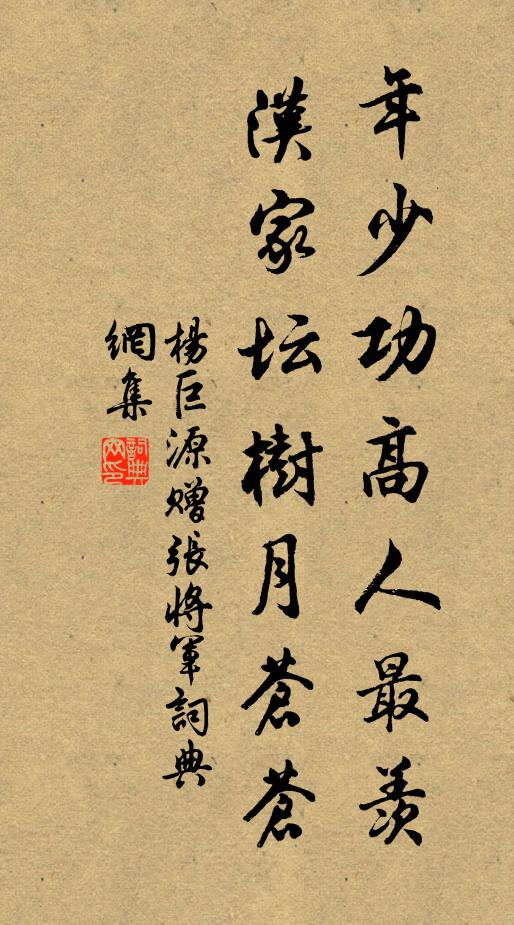 年少功高人最羨
漢家坛樹月蒼蒼
楊巨源赠張將軍詞典
網集
詞典
网印